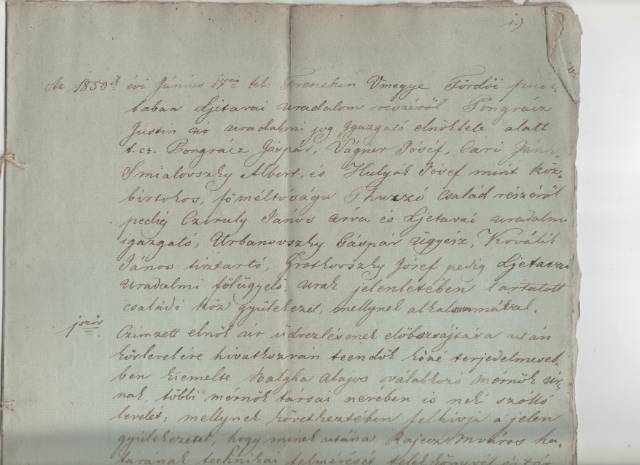 1.)
Az 1850ik évi Június 17én tek. Trencsén Vmegye
taban Ljetavai uradalom részéről Pongrácz
Justin úr uradalmi jog igazgató elnöklete alatt
t. cz. Pongrácz Gáspár, Vágner József,
Smialovszky Albert, és Hulyák József mint köz-
birtokos, főméltóságu Thurzó család részéről
pedig Cziruly János árva és Ljetavai uradalmi
igazgató, Urbanovszky Gáspár ügyész, Kovalik
János tisztartó, Grothovszky József pedig Ljetavai
uradalmi fölügyelő urak jelenlétében tartatott
családi köz gyülekezet, mellynek alkalommával.
Czimzett elnök úr üdvezlésének előbocsájtása után
körlevelére hivatkozván teendők közé terjedelmeseb-
ben kiemelte Alajos vállalkozó mérnök úr-
nak, többi mérnök társai nevében is neki szolló
levelét, mellynek következtében felhívja a jelen
gyülekezetet, hogy minek utána Rajecz mváros ha-
tárának technikai felmérését